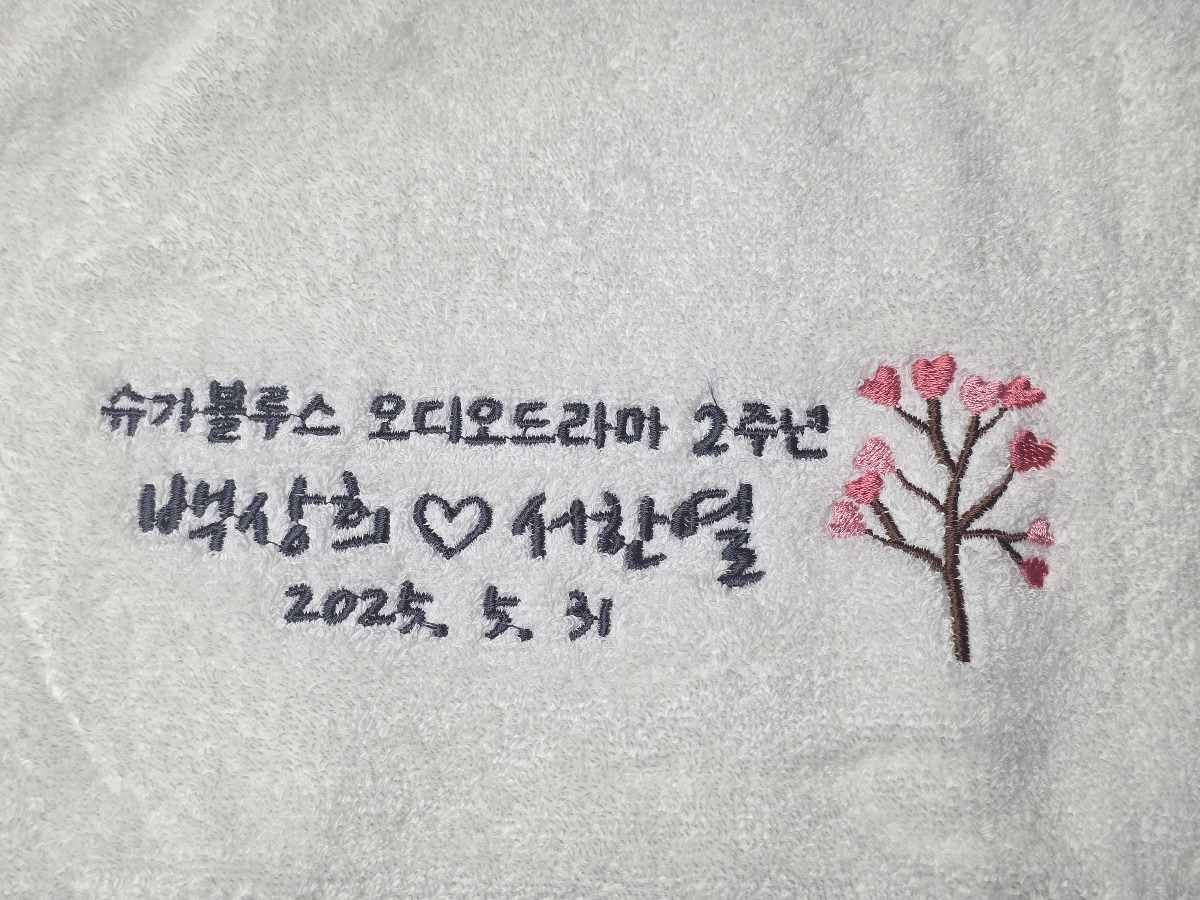 슈가블루스 오디오드라마 2주년
백상희 ♡ 서한열
2025. 5. 31